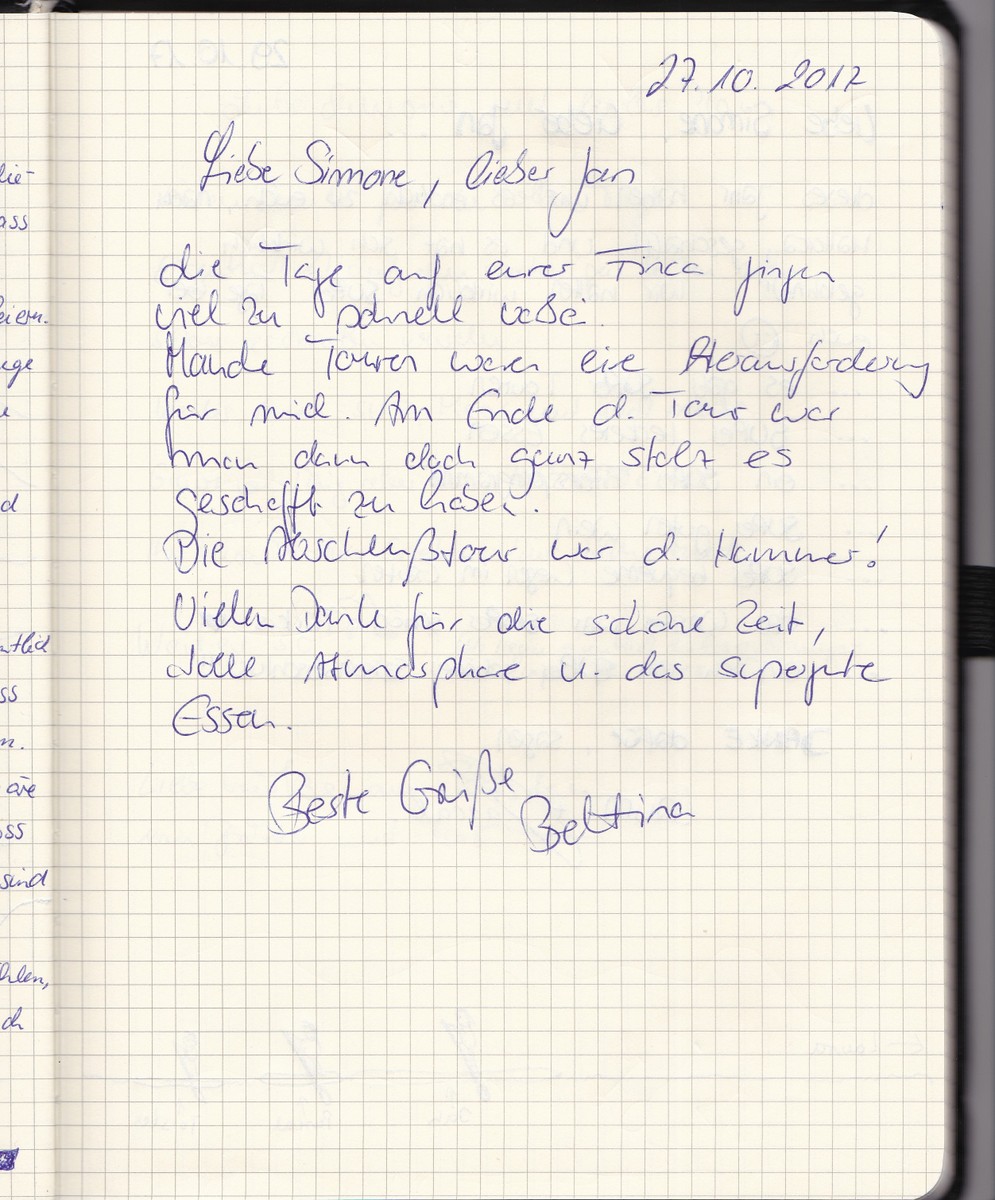 27.10.2017
Liebe Simone, lieber Jan
die Tage auf eurer Finca gingen
viel zu schnell vorbei.
Manche Touren waren eine Herausforderung
für mich. Am Ende d. Tour war
man dann doch ganz stolz es
geschafft zu haben.
Die Abschlußtour war d. Hammer!
Vielen Dank für die schöne Zeit,
tolle Atmosphäre u. das supergute
Essen.
Beste Grüße
Bettina